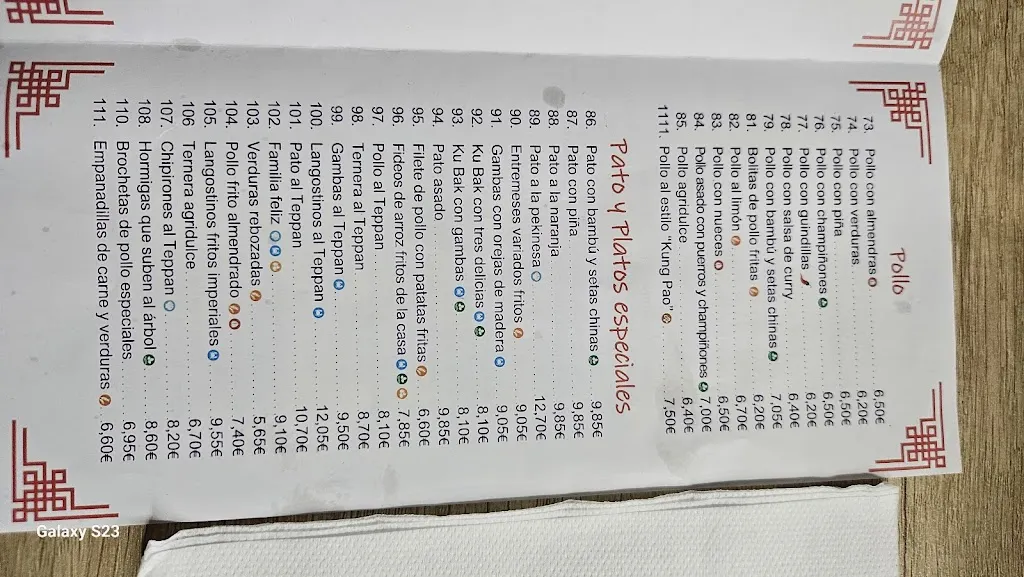 Pollo
73. Pollo con almendras 6,50€
74. Pollo con verduras 6,20€
75. Pollo con piña 6,50€
76. Pollo con champiñones 6,50€
77. Pollo con guindillas 6,20€
78. Pollo con salsa de curry 6,40€
79. Pollo con bambú y setas chinas 7,05€
81. Bolitas de pollo fritas 6,20€
82. Pollo al limón 6,70€
83. Pollo con nueces 6,50€
84. Pollo asado con puerros y champiñones 7,00€
85. Pollo agridulce 6,40€
1111. Pollo al estilo "Kung Pao" 7,50€
Pato y Platos especiales
86. Pato con bambú y setas chinas 9,85€
87. Pato con piña 9,85€
88. Pato a la naranja 9,85€
89. Pato a la pekinesa 12,70€
90. Entremeses variados fritos 9,05€
91. Gambas con orejas de madera 9,05€
92. Ku Bak con tres delicias 8,10€
93. Ku Bak con gambas 8,10€
94. Pato asado 9,85€
95. Filete de pollo con patatas fritas 6,60€
96. Fideos de arroz fritos de la casa 7,85€
97. Pollo al Teppan 8,10€
98. Ternera al Teppan 8,70€
99. Gambas al Teppan 9,50€
100. Langostinos al Teppan 12,05€
101. Pato al Teppan 10,70€
102. Familia feliz 9,10€
103. Verduras rebozadas 5,65€
104. Pollo frito almendrado 7,40€
105. Langostinos fritos imperiales 9,55€
106 Ternera agridulce 6,70€
107. Chipirones al Teppan 8,20€
108. Hormigas que suben al árbol 8,60€
110. Brochetas de pollo especiales 6,95€
111. Empanadillas de carne y verduras 6,60€
Galaxy S23